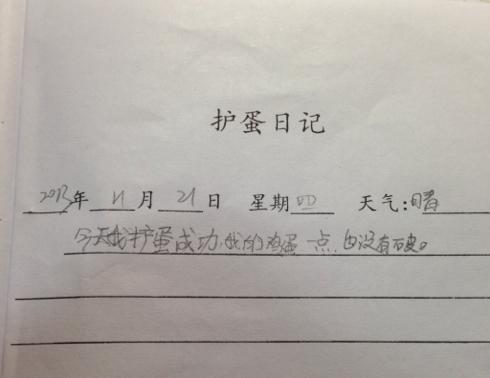 护蛋日记
2013年11月21日 星期四 天气:晴
今天我护蛋成功,我的鸡蛋一点也没有破。